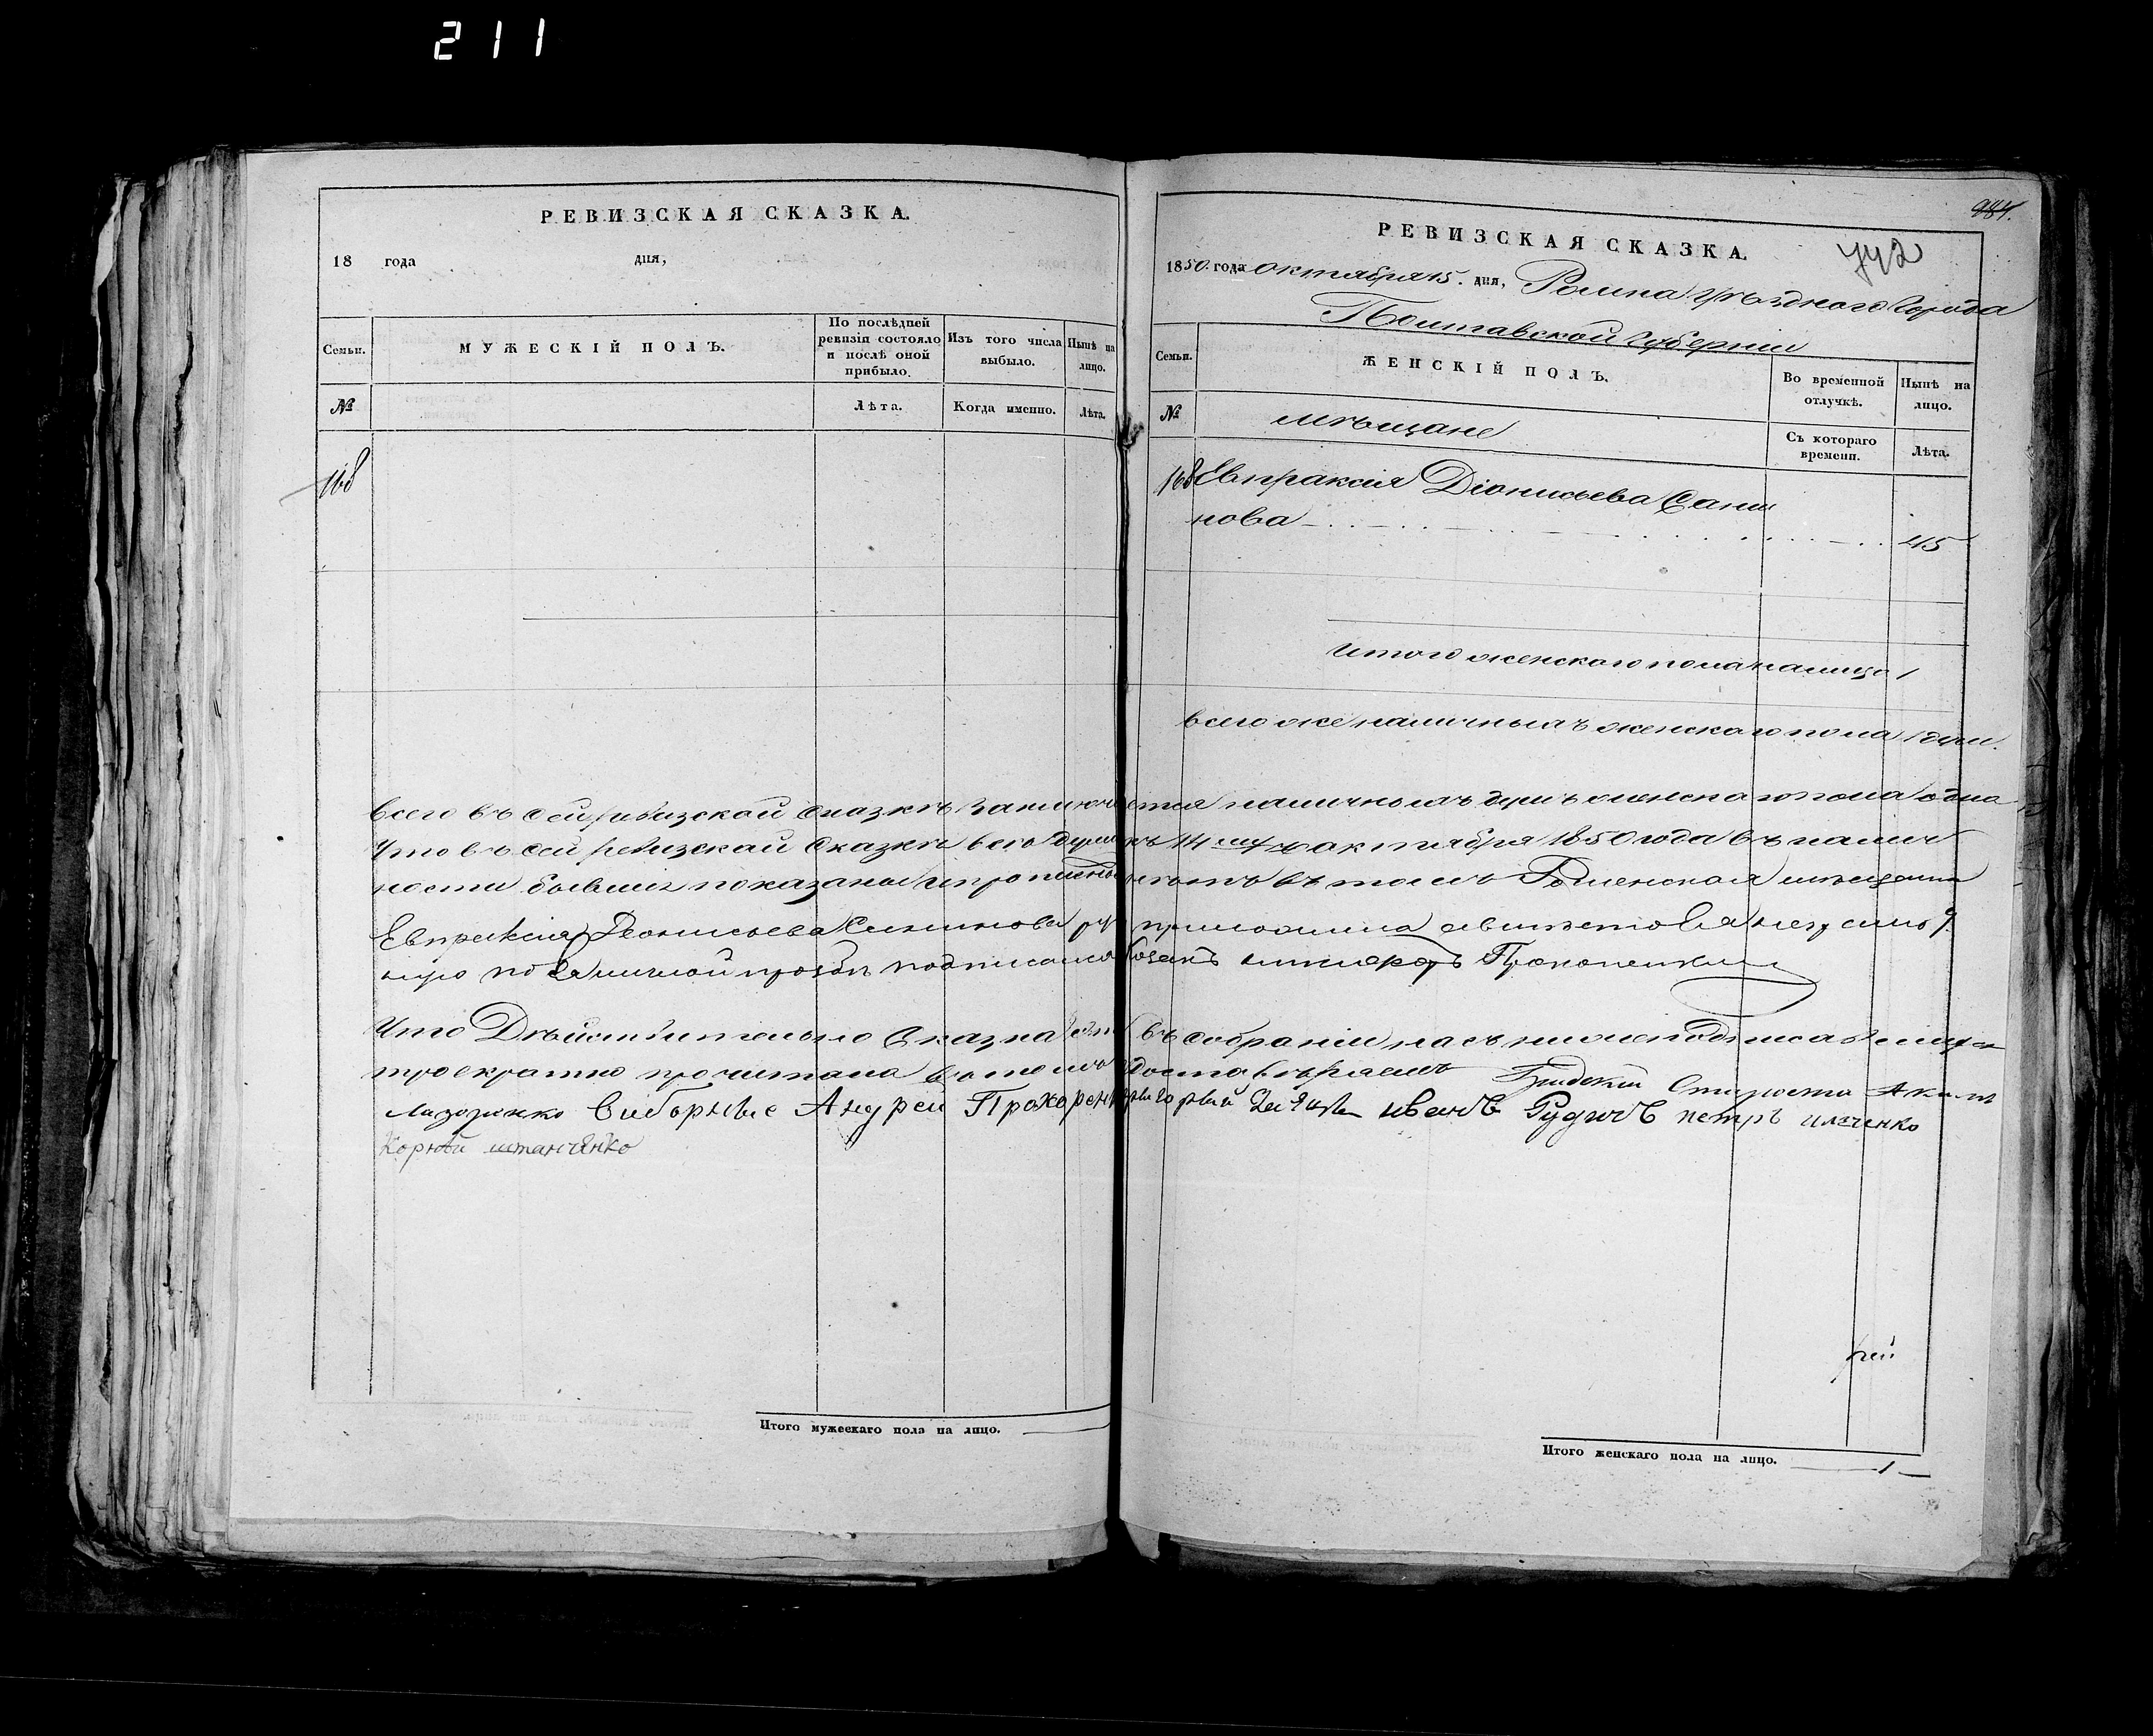 211
РЕВИЗСКАЯ СКАЗКА.
18 года дня,
Семьи.
МУЖЕСКІЙ ПОЛЪ.
По послѣдней ревизіи состояло и послѣ оной прибыло.
Изъ того числа выбыло.
Нынѣ на лицо.
№
Лѣта.
Когда именно.
Лѣта.
168
984.
742
РЕВИЗСКАЯ СКАЗКА.
1850. года октября 15. дня, Ромна уѣзднаго города
Полтавской губерніи
Семьи.
ЖЕНСКІЙ ПОЛЪ.
Во временной отлучкѣ.
Нынѣ на лицо.
№
мѣщане
Съ котораго времени.
Лѣта.
168 Евпраксия Діонисьева Сани
нова 45
Итого женского пола налицо 1
всего же наличныхъ женскаго пола 1 душ.
всего въ сей ревизской сказкѣ заключается наличныхъ душъ женскаго пола одна
Что въ сей ревизской сказкѣ всѣ души къ октября 1850 года въ налич
ности бывшие показаны и въ томъ Роменская мѣщанка
Евпраксия Деонисьева
по личной прозбѣ подписался козакъ Прокопенко
Что Действительно Сказка въ собраніи насъ нижеподписавшихся
троекратно прочитана в томъ Градский Староста
Лазоренко Виборные Андрей Прохоренко иванъ Рудичъ петръ
Корнѣй
Итого мужескаго пола на лицо.
Итого женскаго пола на лицо. 1